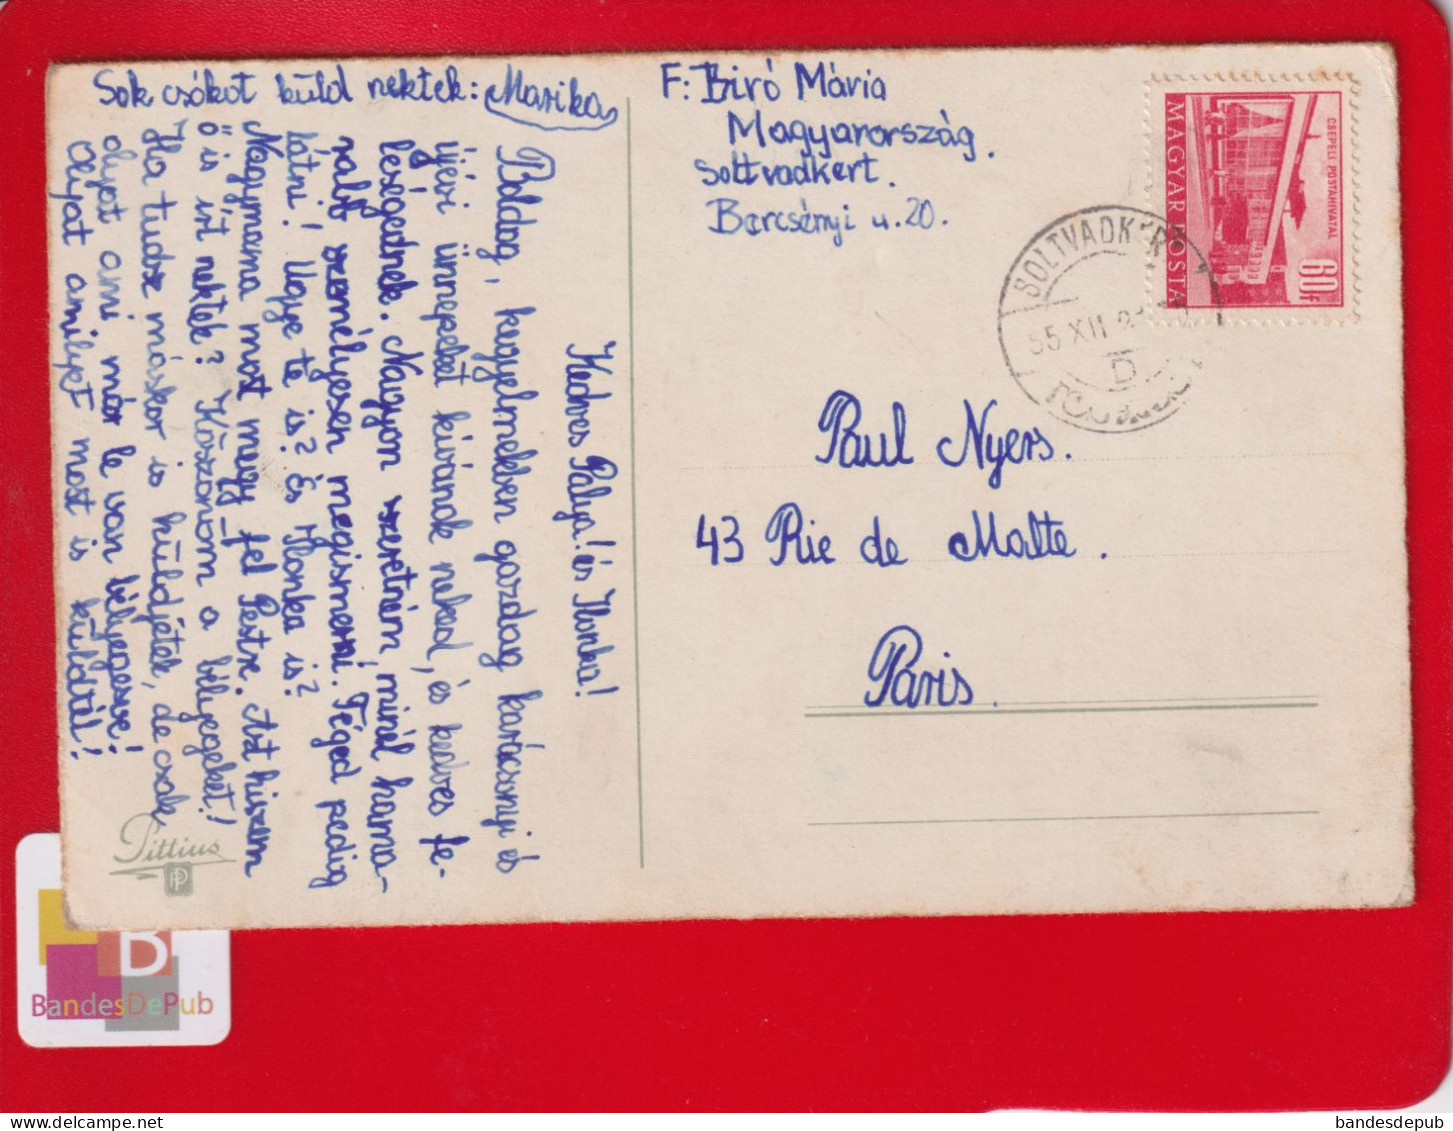 Sok csókot küld nektek: Marika
Kedves Pálya! és Ilonka!
Boldog, kegyelmekben gazdag karácsonyi és
újévi ünnepeket kívánok neked, és kedves fe-
leségednek. Nagyon szeretném, minél hama-
rabb személyesen megismerni. Téged pedig
látni! Ugye te is? és Ilonka is?
Nagymama most megy fel Pestre. Azt hiszem
ő is írt nektek? Köszönöm a bélyegeket!
Ha tudsz máskor is küldjétek, de csak
olyat ami már le van bélyegezve!
Olyat amilyet most is küldtál!
Pittius
F: Biró Mária
Magyarország.
Soltvadkert.
Bercsényi u. 20.
Paul Nyers.
43 Rie de Malte.
Paris.
CSEPELI POSTAHIVATAL
60f
MAGYAR POSTA
SOLTVADK
55 XII
D
B
BandesDePub
bandesdepub